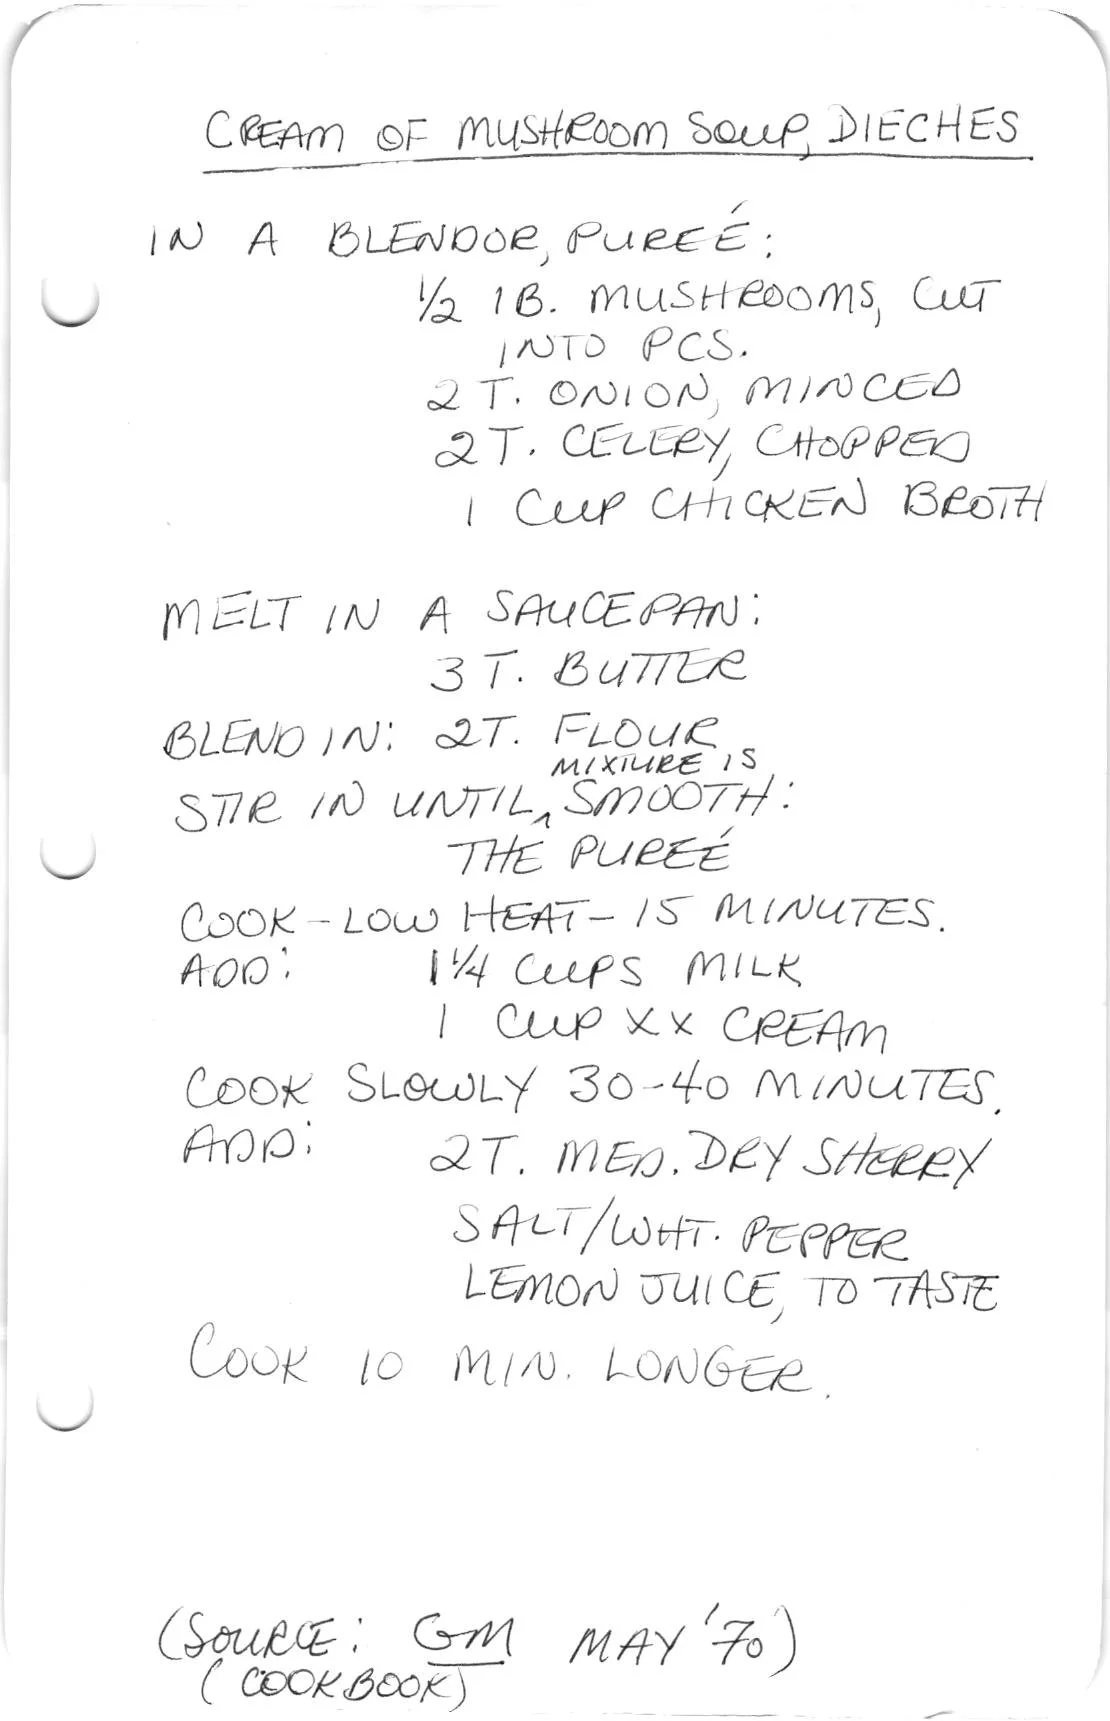 CREAM OF MUSHROOM SOUP, DIECHES
IN A BLENDOR, PUREÉ:
1/2 lB. MUSHROOMS, CUT
INTO PCS.
2 T. ONION, MINCED
2 T. CELERY, CHOPPED
1 CUP CHICKEN BROTH
MELT IN A SAUCEPAN:
3 T. BUTTER
BLEND IN: 2T. FLOUR
MIXTURE IS
STIR IN UNTIL ^ SMOOTH:
THE PUREÉ
COOK - LOW HEAT - 15 MINUTES.
ADD: 1 1/4 CUPS MILK
1 CUP XX CREAM
COOK SLOWLY 30-40 MINUTES.
ADD: 2T. MED. DRY SHERRY
SALT/WHT. PEPPER
LEMON JUICE, TO TASTE
COOK 10 MIN. LONGER.
(SOURCE: GM MAY '70)
(COOKBOOK)